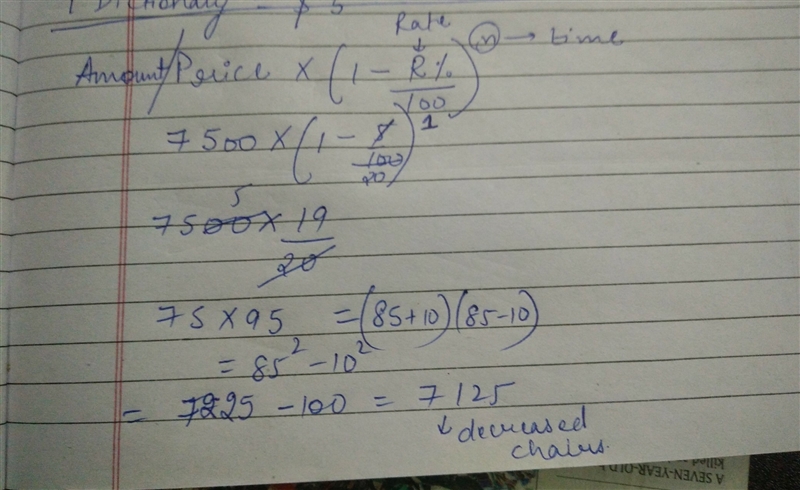 1 Dictionary - $ 5
Rate
Amount/Price × (1 - R%/100)^n → time
7500 × (1 - 5/100)^1
20
5
7500 × 19/20
75 × 95 = (85+10)(85-10)
= 85² - 10²
= 7225 - 100 = 7125
↳ decreased
chairs.
A SEVEN-YEAR-OLD
killed